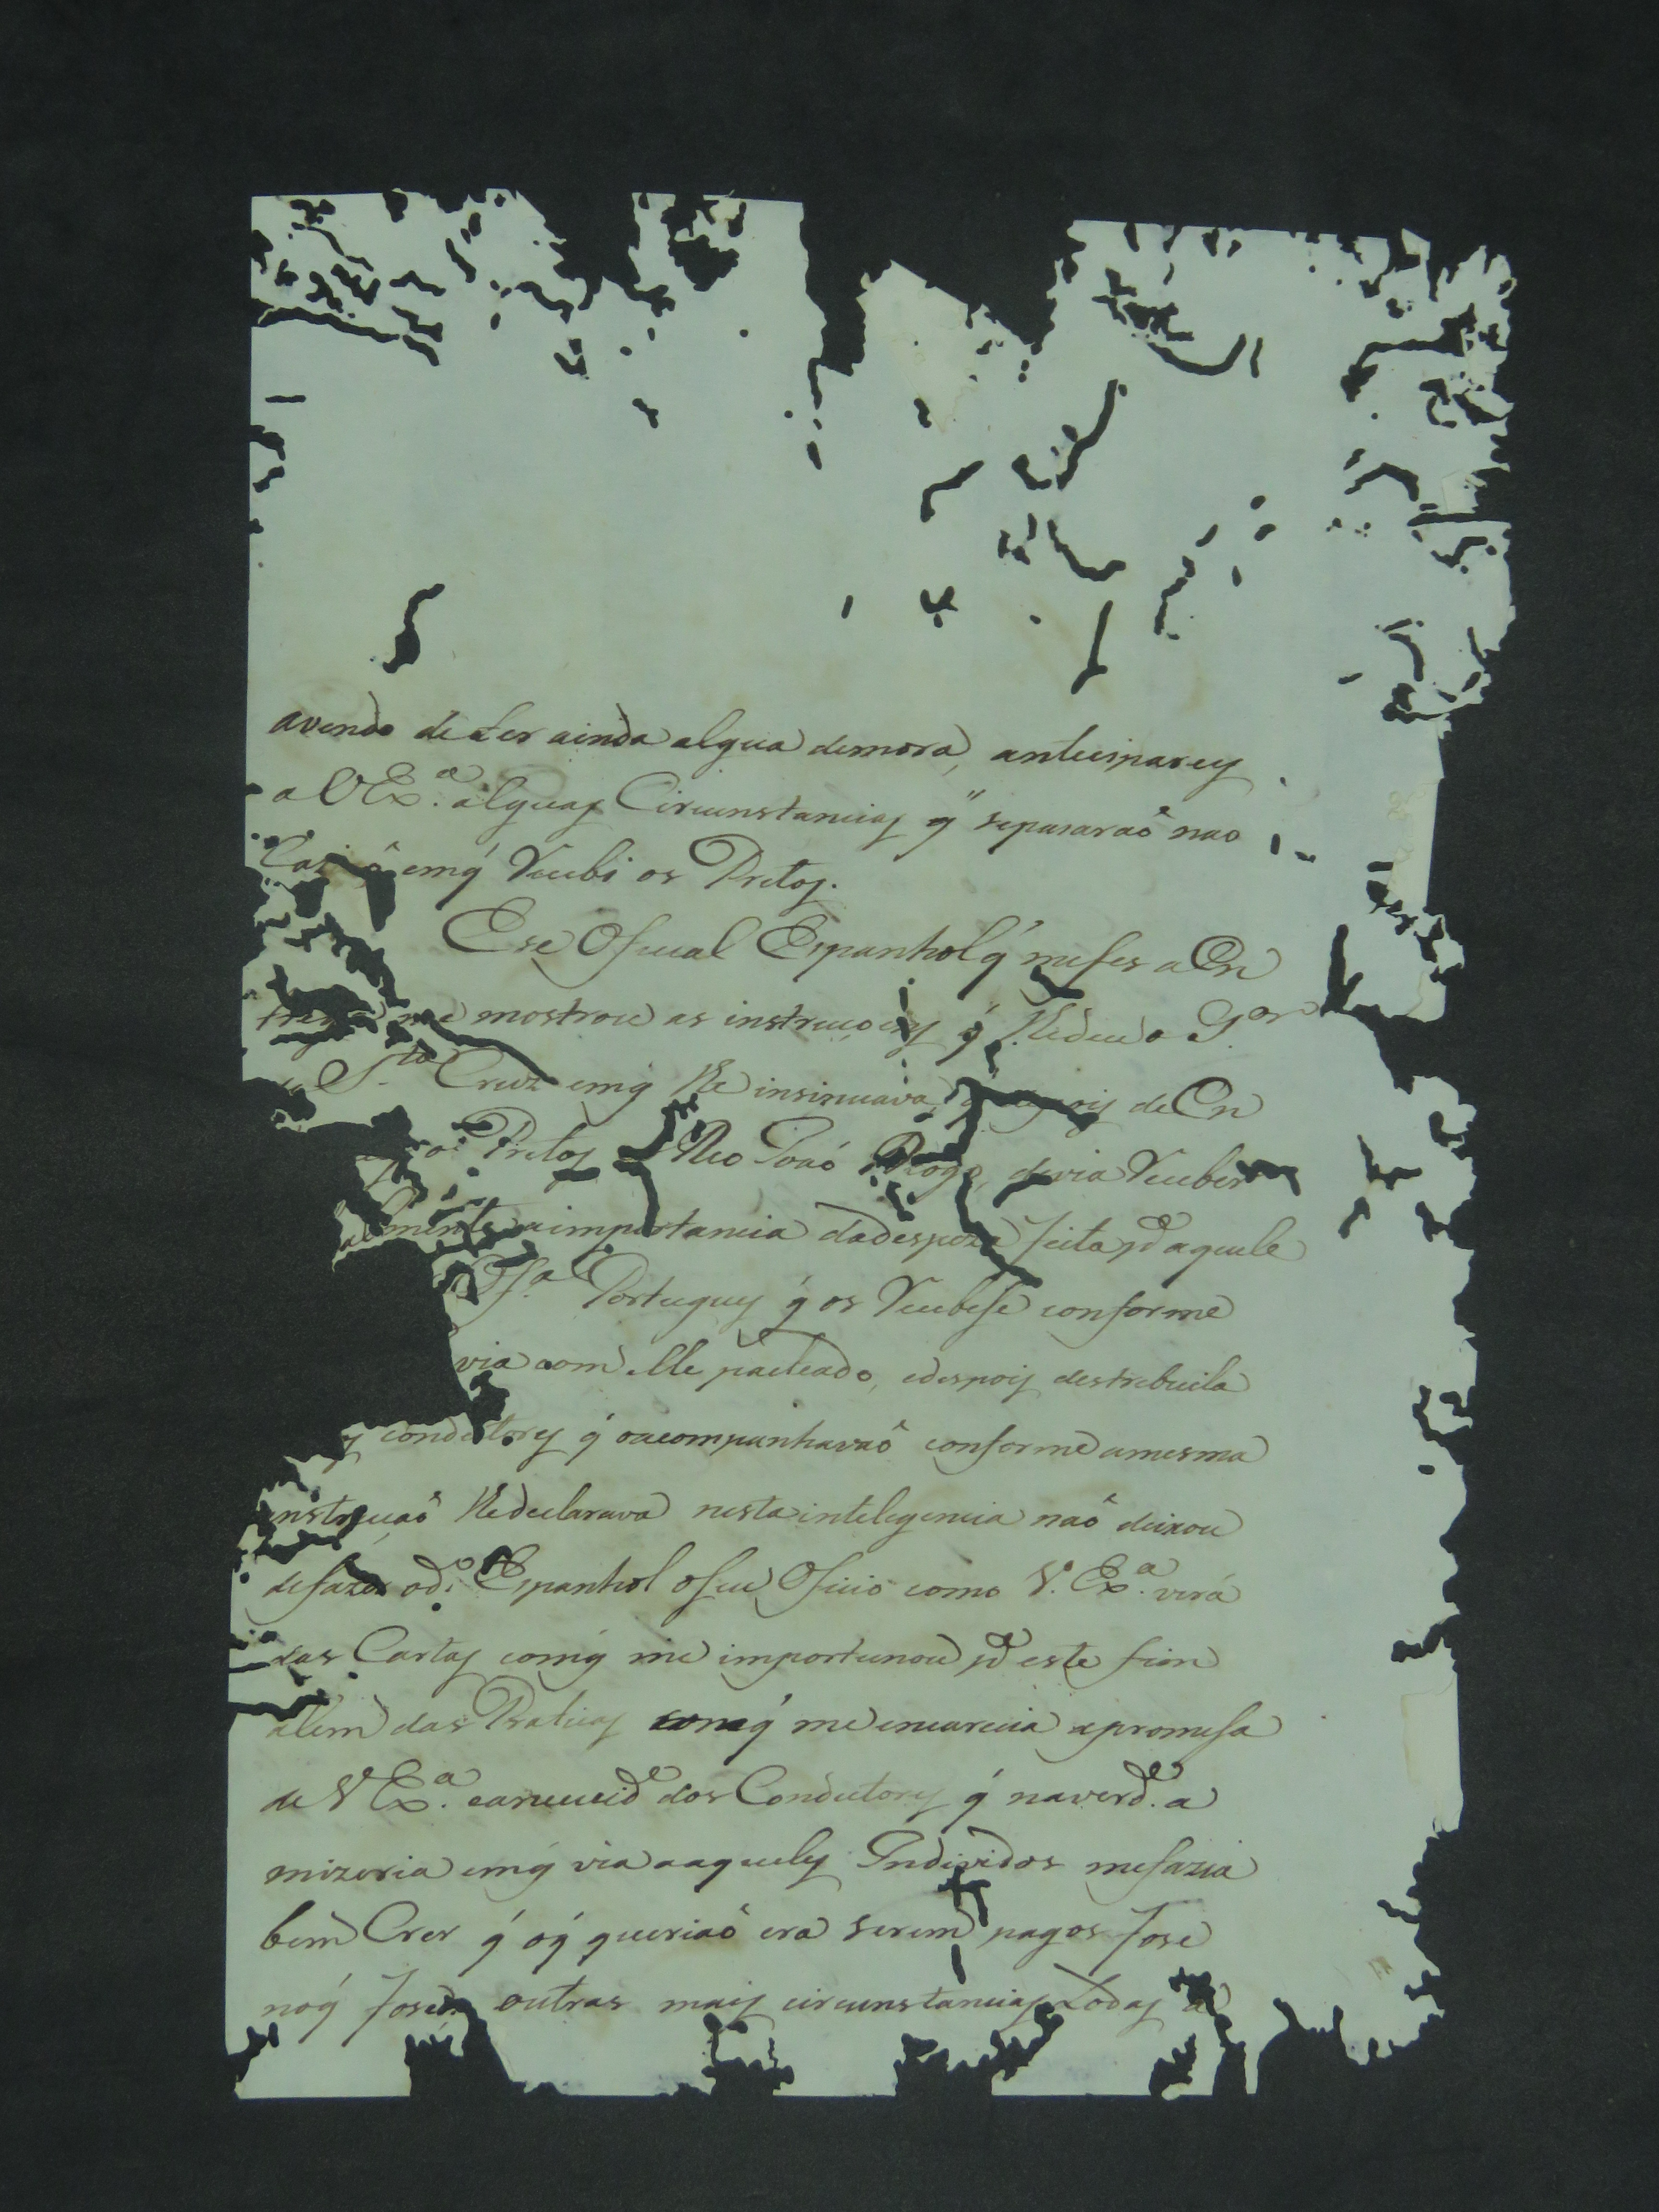 avendo de ter ainda algua demora, anteciparey
a V Ex.ª alguas Circunstancias q̃ sepasaraõ nao
Cazi emq̃ Recebi os Pretos.
Ese Oficial Espanhol q̃ mefes a En
trega me mostrou as instrucoens q̃ lhedeu o G.or
S.ta Cruz emq̃ lhe insinuava, de En
os Pretos lheo João devia Receber
almente aimportancia dadespeza feita pª aquele
Of.al Portugues q̃ os Recebese conforme
via com elle pacteado, edespois destrebuila
s condutores q̃ oacompanhavaõ conforme amesma
instruçaõ lhedeclarava nesta intelegencia naõ deixou
defazer od.º Espanhol oseu Oficio como V. Ex.ª verá
das Cartas comq̃ me importunou pª este fim
alem das Praticas comq̃ me encarecia apromesa
de V Ex.ª eanececid.e dos Condutores q̃ naverd.e a
mizeria emq̃ via aaqueles Individos mefazia
bem Crer q̃ oq̃ queriaõ era serem pagos fose
noq̃ fosem outras mais circunstancias todas a